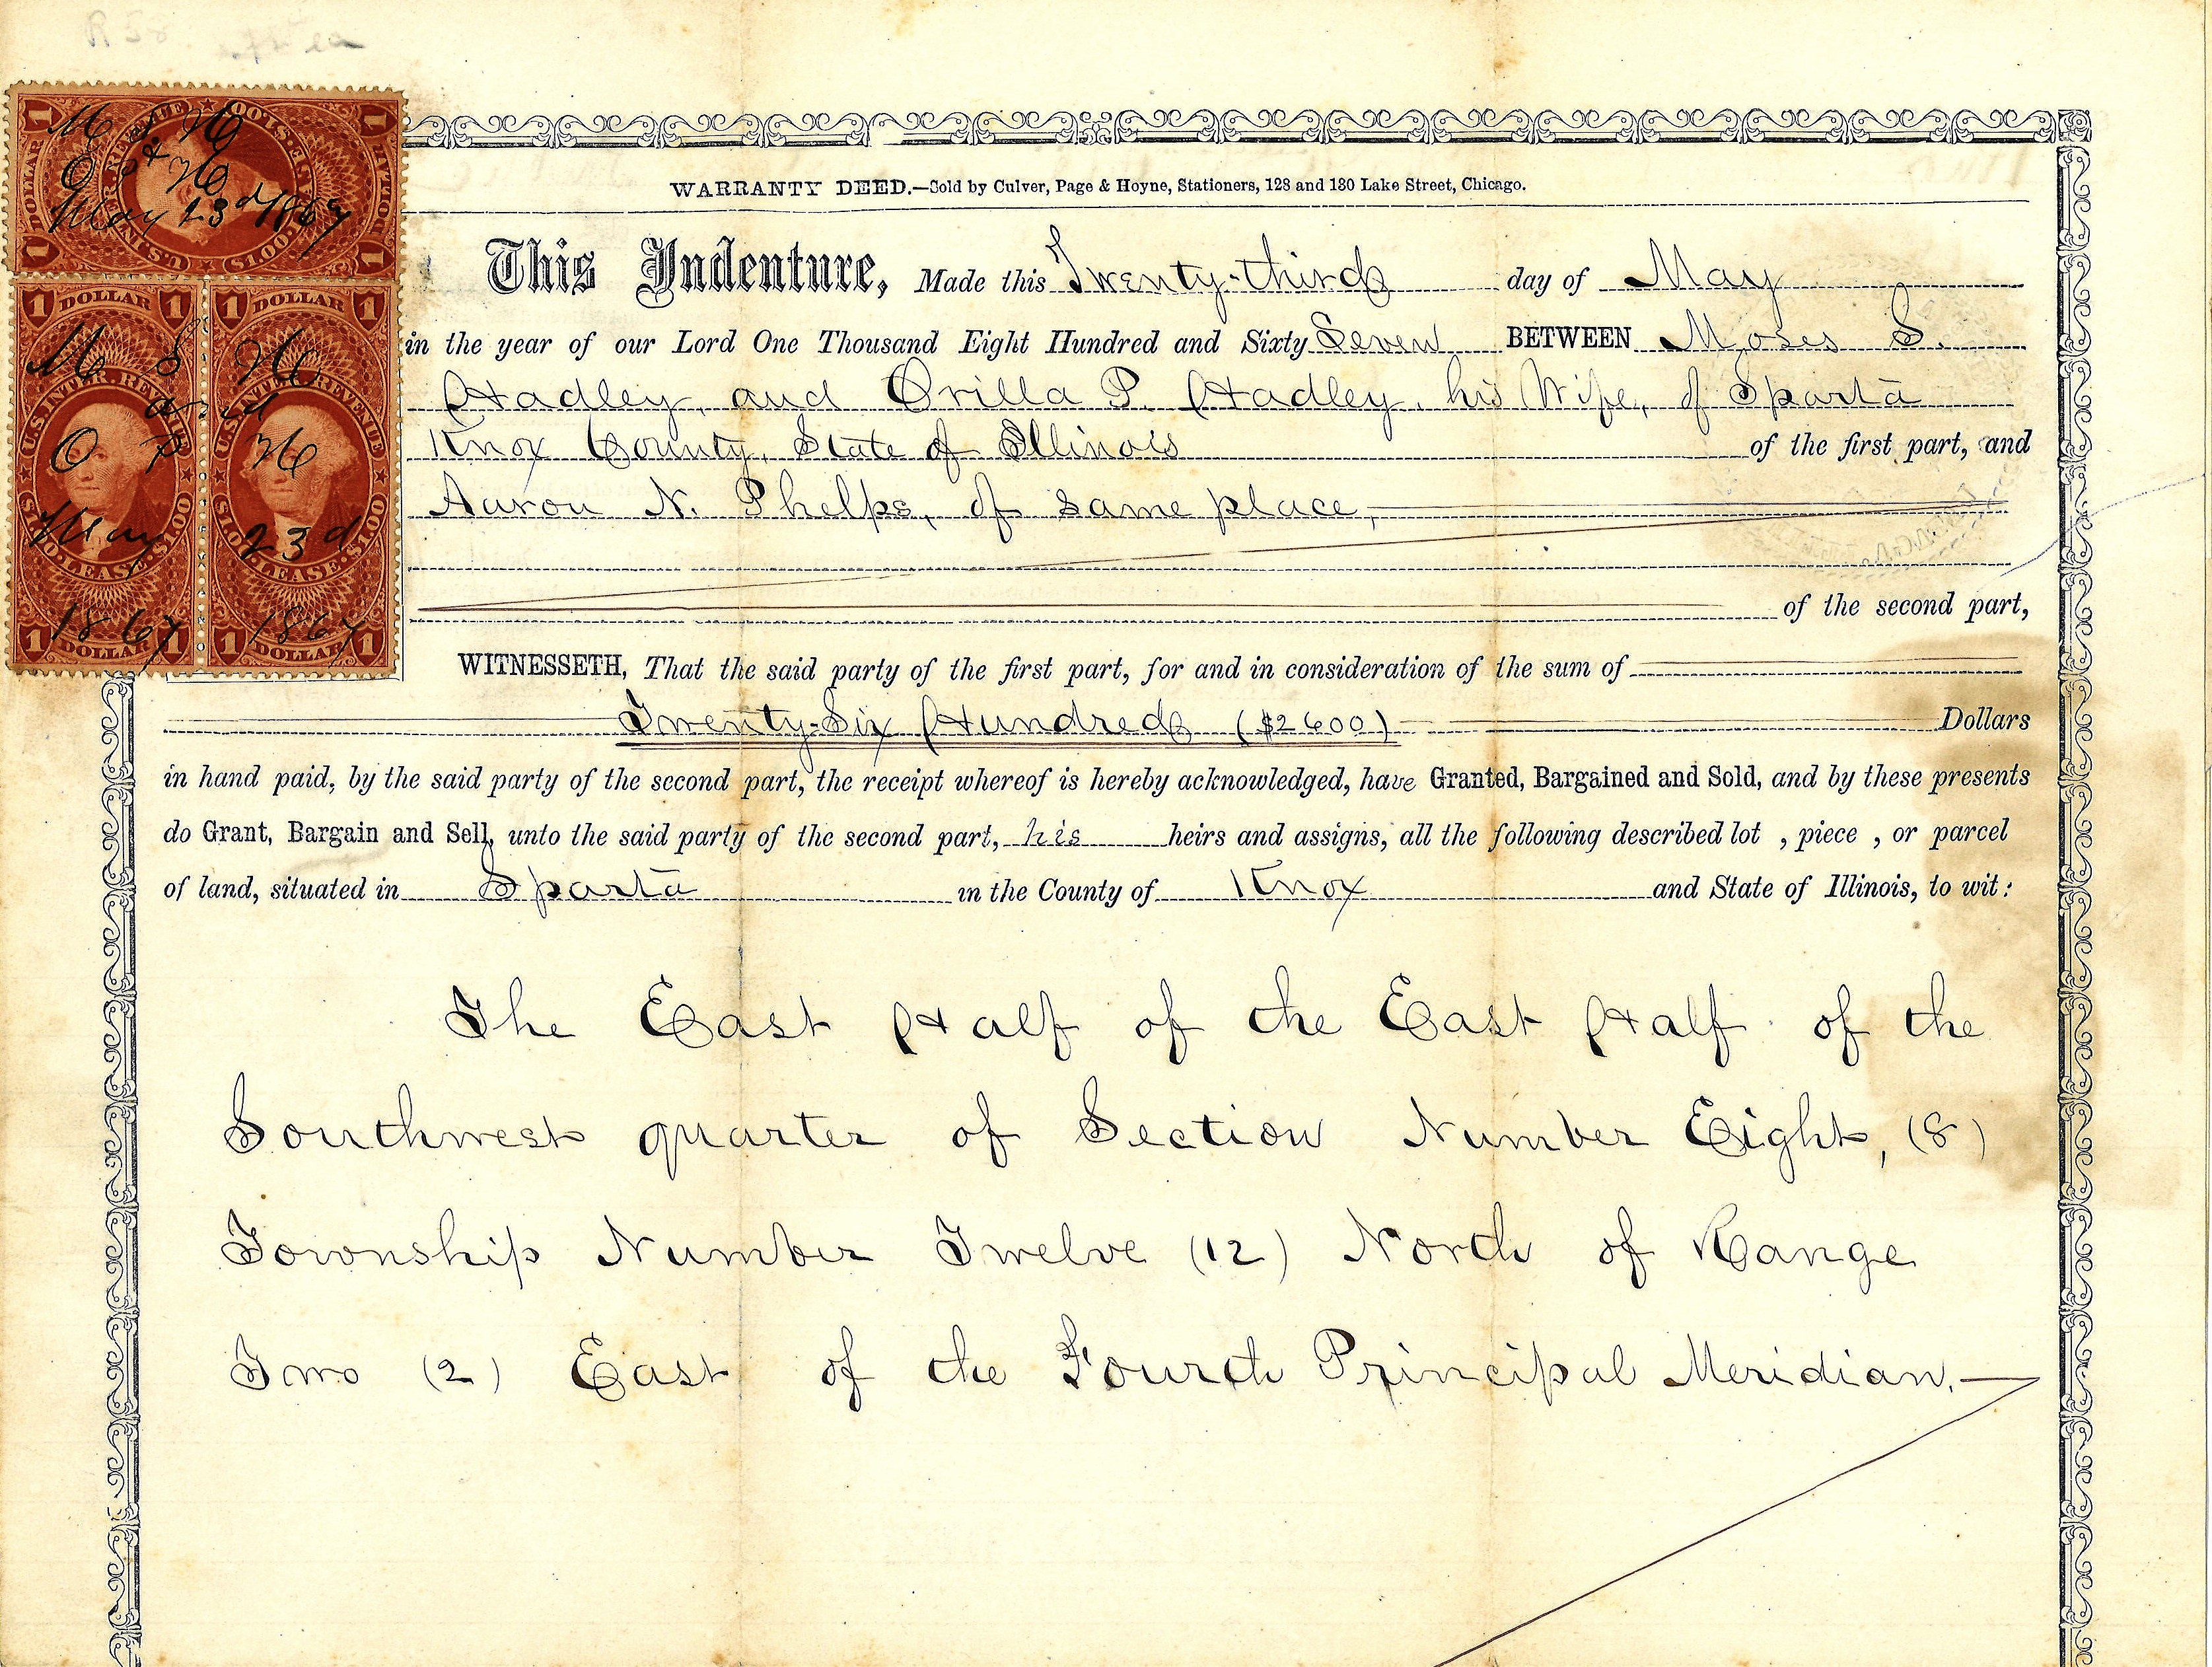 M S H
& 
O P H
May 23d 1867
U.S. INTER. REVENUE
1 DOLLAR 1
M S H
and
O P H
May 23d
1867 1867
U.S. INTER. REVENUE
$1.00. LEASE. $1.00
1 DOLLAR 1
WARRANTY DEED.—Sold by Culver, Page & Hoyne, Stationers, 128 and 130 Lake Street, Chicago.
This Indenture, Made this Twenty-third day of May
in the year of our Lord One Thousand Eight Hundred and Sixty Seven BETWEEN Moses S.
Hadley, and Orilla P. Hadley, his Wife, of Sparta
Knox County, State of Illinois of the first part, and
Aaron N. Phelps, of same place,
of the second part,
WITNESSETH, That the said party of the first part, for and in consideration of the sum of
Twenty-Six Hundred ($2600) Dollars
in hand paid, by the said party of the second part, the receipt whereof is hereby acknowledged, have Granted, Bargained and Sold, and by these presents
do Grant, Bargain and Sell, unto the said party of the second part, his heirs and assigns, all the following described lot , piece , or parcel
of land, situated in Sparta in the County of Knox and State of Illinois, to wit:
The East Half of the East Half of the
Southwest quarter of Section Number Eight, (8)
Township Number Twelve (12) North of Range
Two (2) East of the Fourth Principal Meridian.—